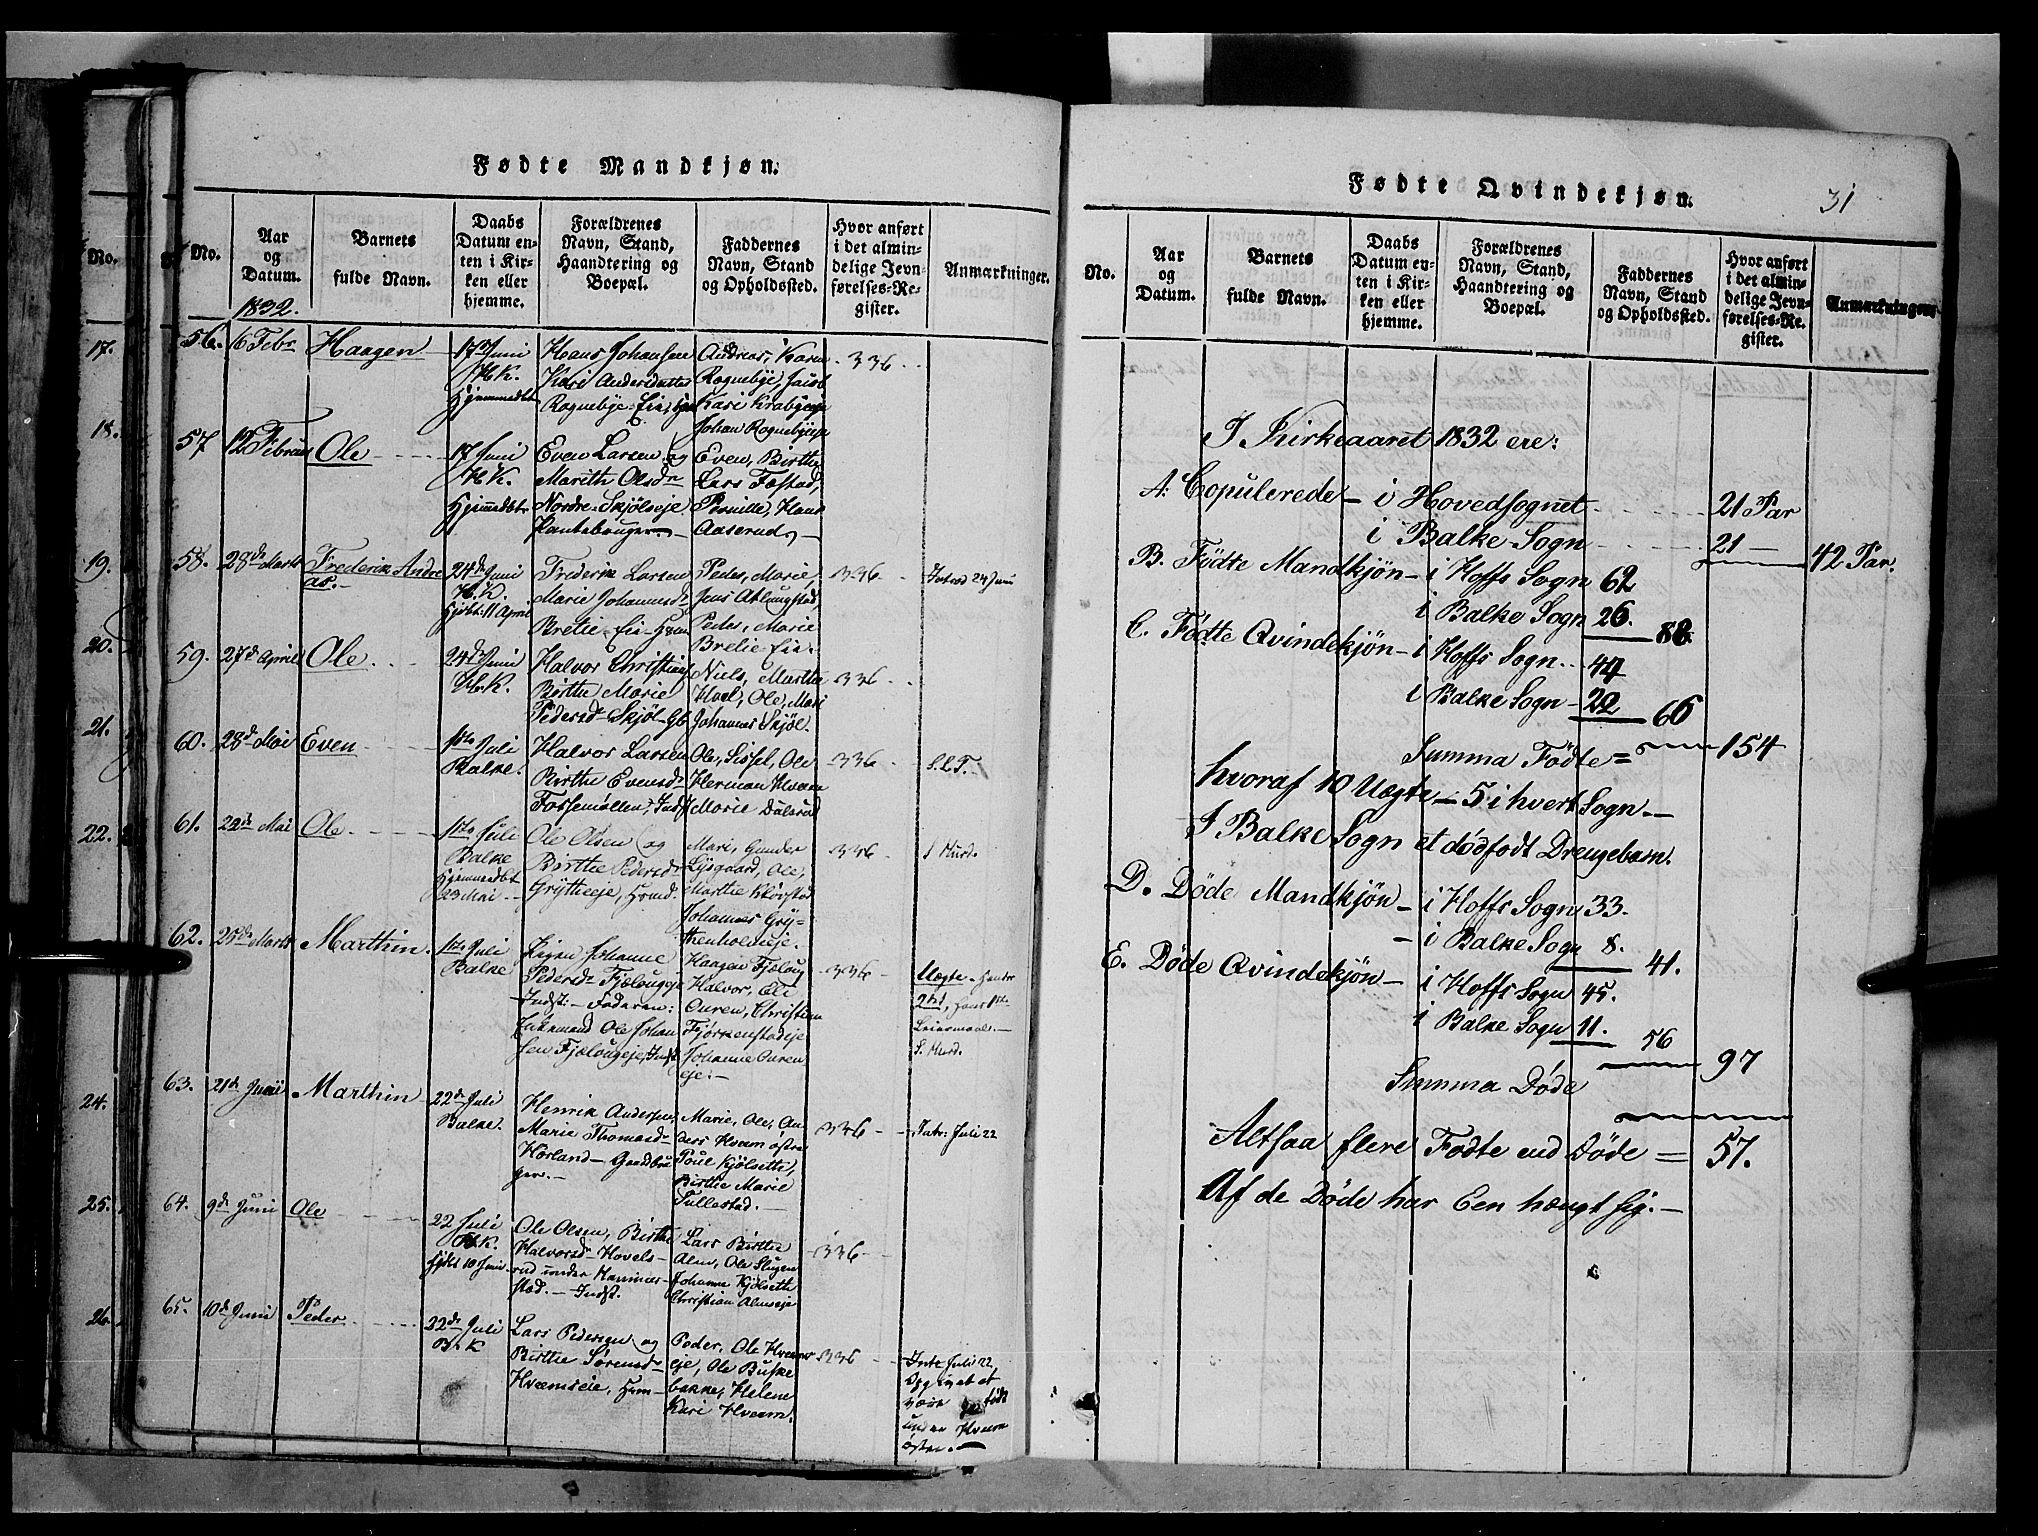 Fødte Mandkjøn.
No.
Aar og Datum.
Barnets fulde Navn.
Daabs Datum enten i Kirken eller hjemme.
Forældrenes Navn, Stand, Haandtering og Boepæl.
Faddernes Navn, Stand og Opholdssted.
Hvor anført i det almindelige Jevnførelses-Register.
Anmærkninger.
1832.
17.
18.
19.
20.
21.
22.
24.
25.
26.
56. 16 Febr Haagen 17 Juni
H K.
Hjemmedbt
Hans Johansen
Kari Andersdatter
Rognebye-Eie
Andreas, Karen
Rognebye, Jacob
Kari Krabyeeje
Johan Rognebyeeje
336
57 12 Februar Ole 17 Juni
H K.
Hjemmedbt
Even Larsen og
Marith Olsdr
Nordre-Skjölseje
Even, Birthe
Lars Fæstad,
Pernille, Hans
Aaserud
58. 28de Marts Frederik Andreas. 24de Juni
H. K.
Hjdbt: 11 April
Frederik Larsen
Marie Johannesdr
Brelie-Eie-Hmd
Peder, Marie,
Jens Atlungstad,
Peder, Marie
Brelie-Eie.
336
Introd 24 Juni
59. 27de April Ole 24de Juni
H. K.
Halvor Christians
Birthe Marie
Pedersdr Skjöl-Gb
Niels, Marthe
Hoel, Ole, Mari
Johannes Skjöl.
336
60. 28de Mai Even 1ste Juli
Balke.
Halvor Larsen
Birthe Evensdr
Fossemöllen, Indst
Ole, Sissel, Ole
Herman Hveem
Marie Dalsrud
336
S.L.T.
61. 22de Mai Ole 1ste Juli
Balke
Hjemmedbt
23 Mai
Ole Olsen og
Birthe Pedersdr
Grytheeje, Hmd
Mari, Gunder
Lysgaard, Ole,
Marthe Klörstad
Johannes Grythenholdseje.
336
S Hurd.
62. 25de Marts Marthin. 1ste Juli
Balke
Pigen Johanne
Pedersdr Fjælougeje
Indst: - Faderen:
Johan Fjælougeje, Indst
Haagen Fjæloug
Halvor, Eli
Ouren, Christian
Fjörkenstadeje
Johanne Ouren
eje.
336
Uægte - hendes
2det, hans 1ste
Leiermaal.
S. Hurd.
63. 21de Junii Marthin 22de Juli
Balke.
Henrik Andersen,
Marie Thomasdr
Hörland - Gaardbruger.
Marie, Ole, Anders Hveem östre
Poul Kjölsette,
Birthe Marie
Tullestad.
336
Intr: Juli 22
64. 9de Juni Ole 22 Juli
H. K.
hjdbt 10 Juni
Ole Olsen, Birthe
Halvorsdr Hovelsrud under Hammerstad. - Indst.
Lars Birthe
Alm, Ole Slugen
Johanne Kjölsette
Christian Almseje
336
65. 10de Juni Peder 22de Juli
B. K
Lars Pedersen og
Birthe Sörensdr
Hveemseie, Hm
Peder, Ole Hveemseje, Ole Buskebakke, Helene
Kari Hveem.
336
Intr Juli 22,
Opgivet at
være født
under Hveem
östre.
Fødte Qvindekjøn.
31
No.
Aar og Datum.
Barnets fulde Navn.
Daabs Datum enten i Kirken eller hjemme.
Forældrenes Navn, Stand, Haandtering og Boepæl.
Faddernes Navn, Stand og Opholdssted.
Hvor anført i det almindelige Jevnførelses-Register.
Anmærkninger
I Kirkeaaret 1832 ere:
A: Copulerede - i Hovedsognet 21 Par
i Balke Sogn 21 - 42 Par.
B. Födte Mandkjön - i Hoffs Sogn 62
i Balke Sogn 26. 88.
C. Födte Qvindekjön - i Hoffs Sogn. 44
i Balke Sogn - 22 66
Summa Födte = 154
hvoraf 10 Uægte - 5 i hvert Sogn. -
I Balke Sogn et dödfödt Drengebarn.
D. Döde Mandkjön - i Hoffs Sogn 33.
- i Balke Sogn 8. 41.
E. Döde Qvindekjön - i Hoffs Sogn 45.
i Balke Sogn 11. 56
97
Summa Döde
Altsaa flere Födte end Döde = 57.
Af de Döde har Een hængt sig. -